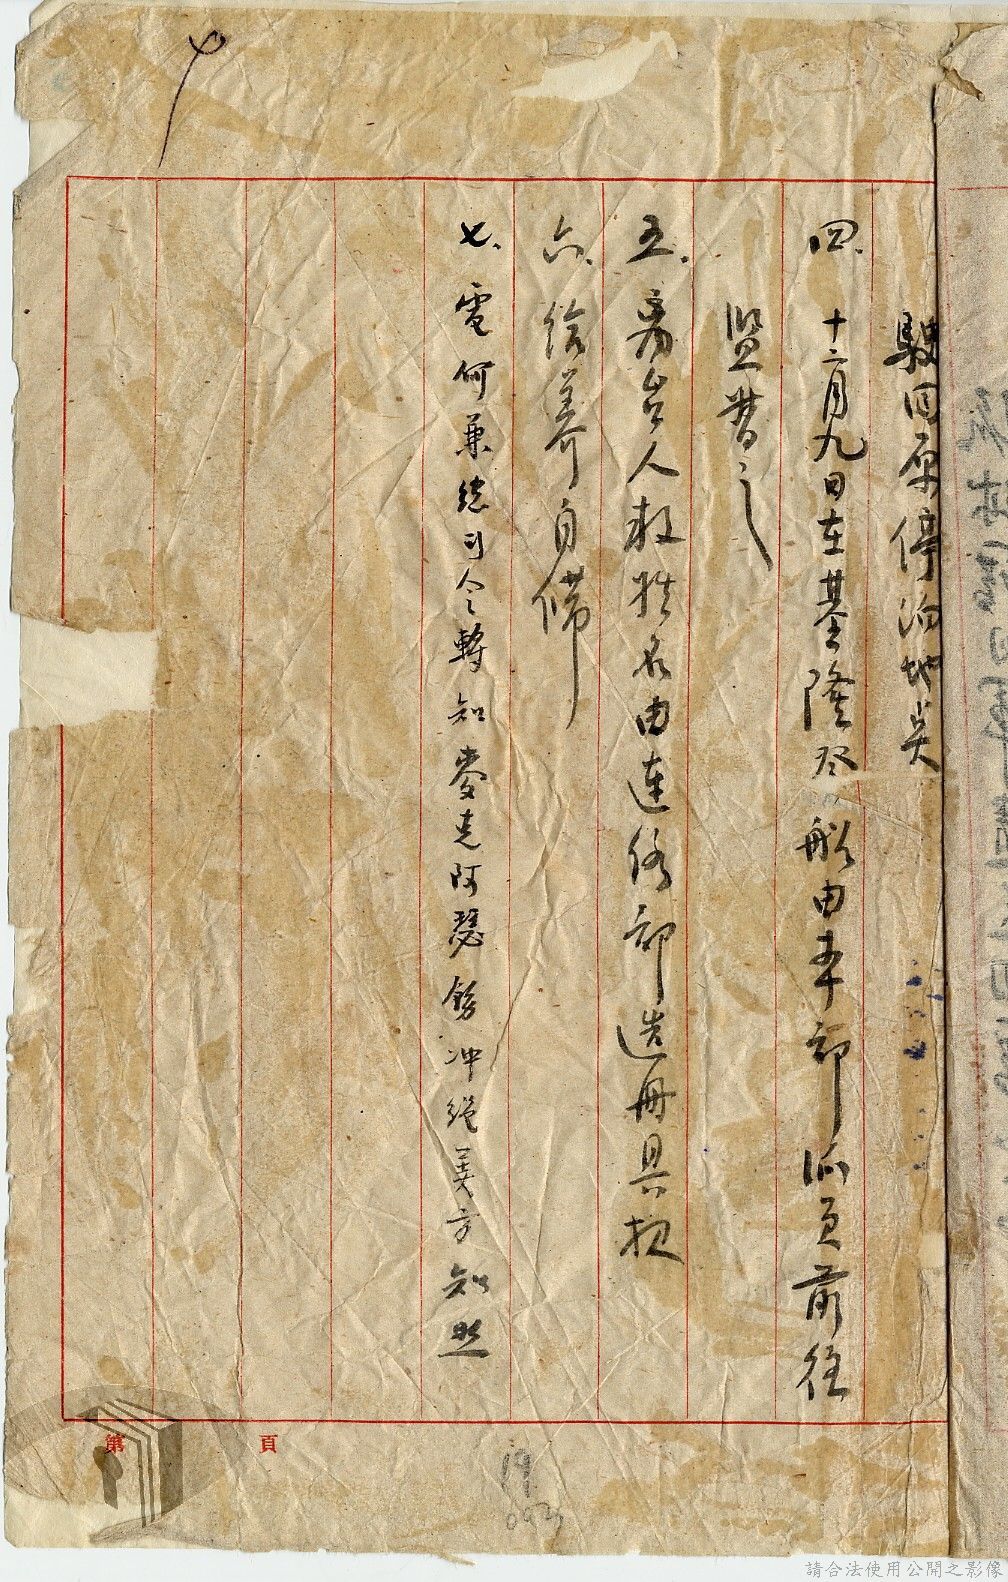 駛回原停泊地点
四、十二月九日在基隆登船由本部派員前往
監督之
五、離台人数姓名由連絡部造册具报
六、給养自備
七、電何兼總司令轉知麥克阿瑟餝冲繩美方知照
第 頁
19
請合法使用公開之影像